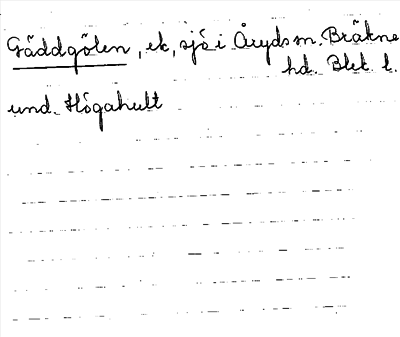 Gäddgölen, ek, sjö i Åryds sn. Bräkne
hd. Blek. l.
und. Högahult